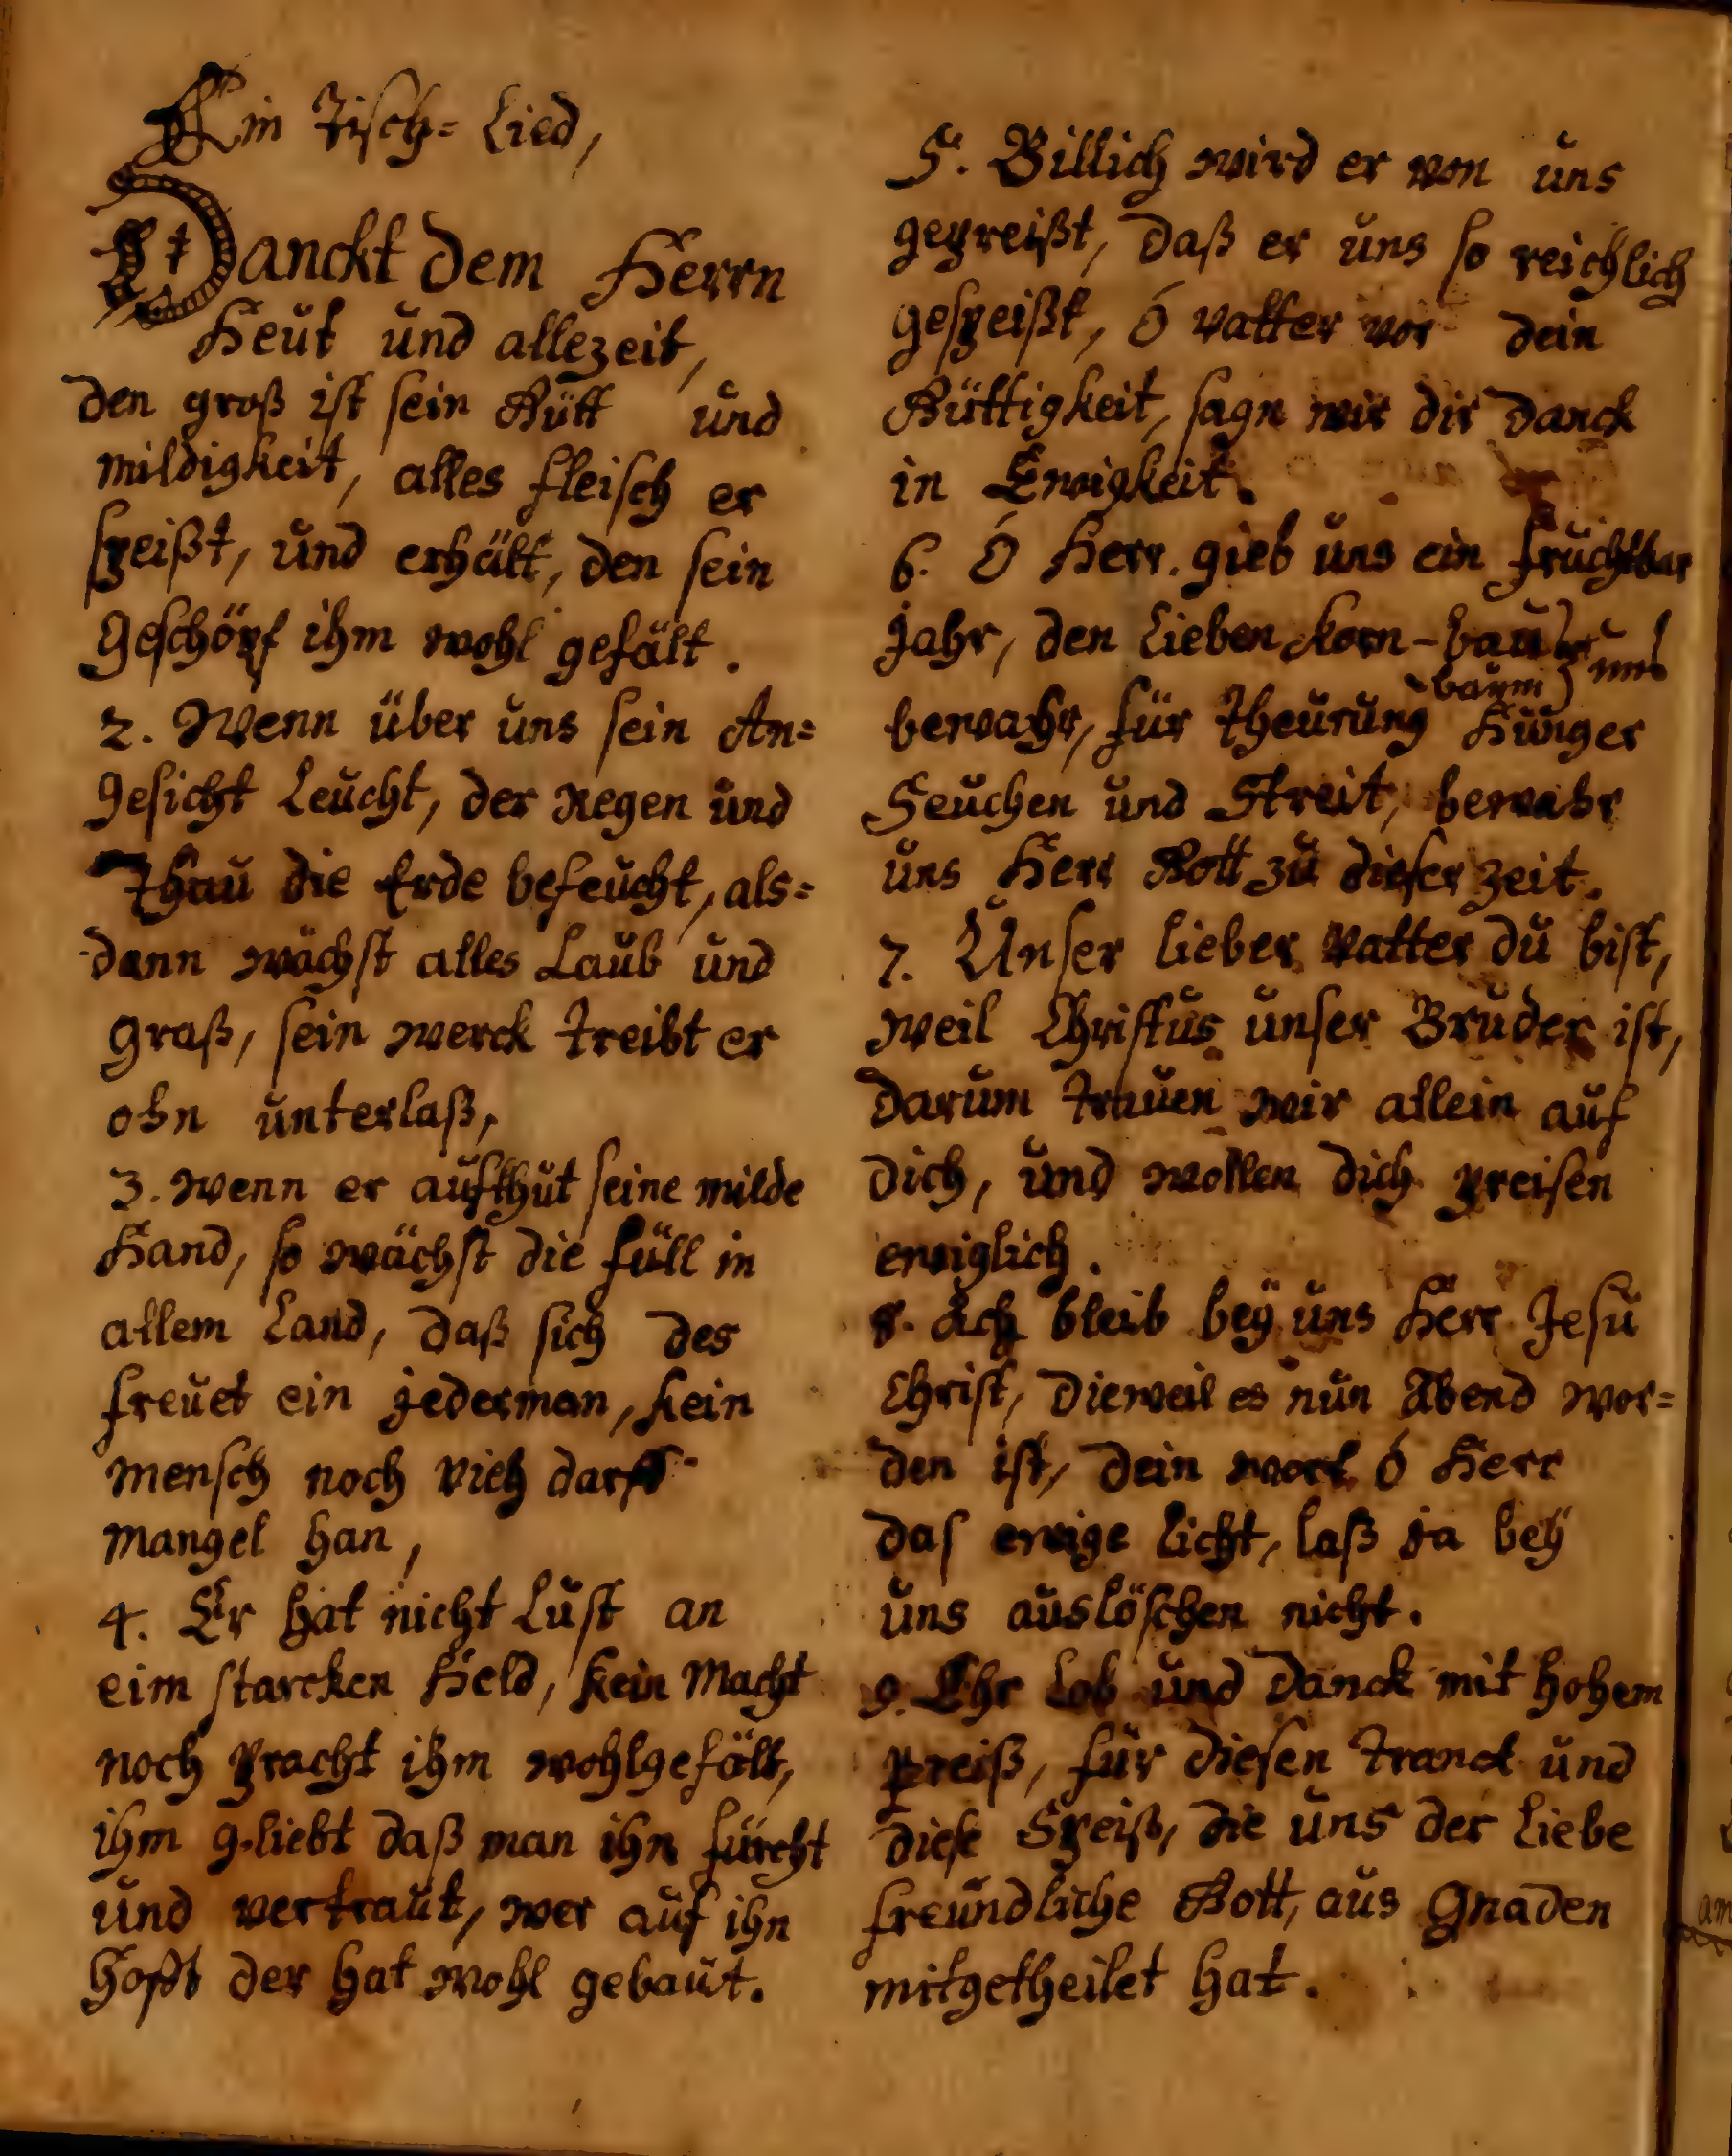 Ein Tisch= Lied,
Danckt dem Herrn
Heut und allezeit,
den groß ist sein Gütt und
mildigkeit, alles fleisch er
speißt, und erhält, den sein
Geschöpf ihm wohl gefält.
2. Wenn über uns sein An=
gesicht Leucht, der Regen und
Thau die Erde befeucht, als=
dann wächst alles Laub und
graß, sein werck treibt er
ohn unterlaß,
3. wenn er aufthut seine milde
Hand, so wächst die füll in
allem Land, daß sich des
freuet ein jederman, kein
mensch noch vieh darff
mangel han,
4. Er hat nicht Lust an
eim starcken Held, kein Macht
noch pracht ihm wohlgefält,
ihm g.liebt daß man ihn fürcht
und vertraut, wer auf ihn
hofft der hat wohl gebaut.
5. Billich wird er von uns
gepreißt, daß er uns so reichlich
gespeißt, ó vatter vor dein
Güttigkeit, sagn wir dir danck
in Ewigkeit.
6. Ó Herr. gieb uns ein fruchtbar
Jahr, den Lieben korn-bau und
baum
bewahr, für Theurung Hunger
Seuchen und Streit, bewahr
uns Herr Gott zu dieser zeit.
7. Unser lieber Vatter du bist,
weil Christus unser Bruder ist,
darum trauen wir allein auf
dich, und wollen dich preisen
ewiglich.
8. Ach bleib beÿ uns Herr Jesu
Christ, dieweil es nun Abend wor=
den ist, dein wort ó Herr
das ewige licht, laß ja beÿ
uns auslöschen nicht.
9. Ehr Lob und Danck mit hohem
preiß, für diesen tranck und
diese Speiß, die uns der liebe
freundliche Gott, aus Gnaden
mitgetheilet hat.